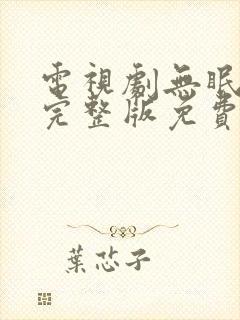 電視劇無眠
完整版免費
葉芯子